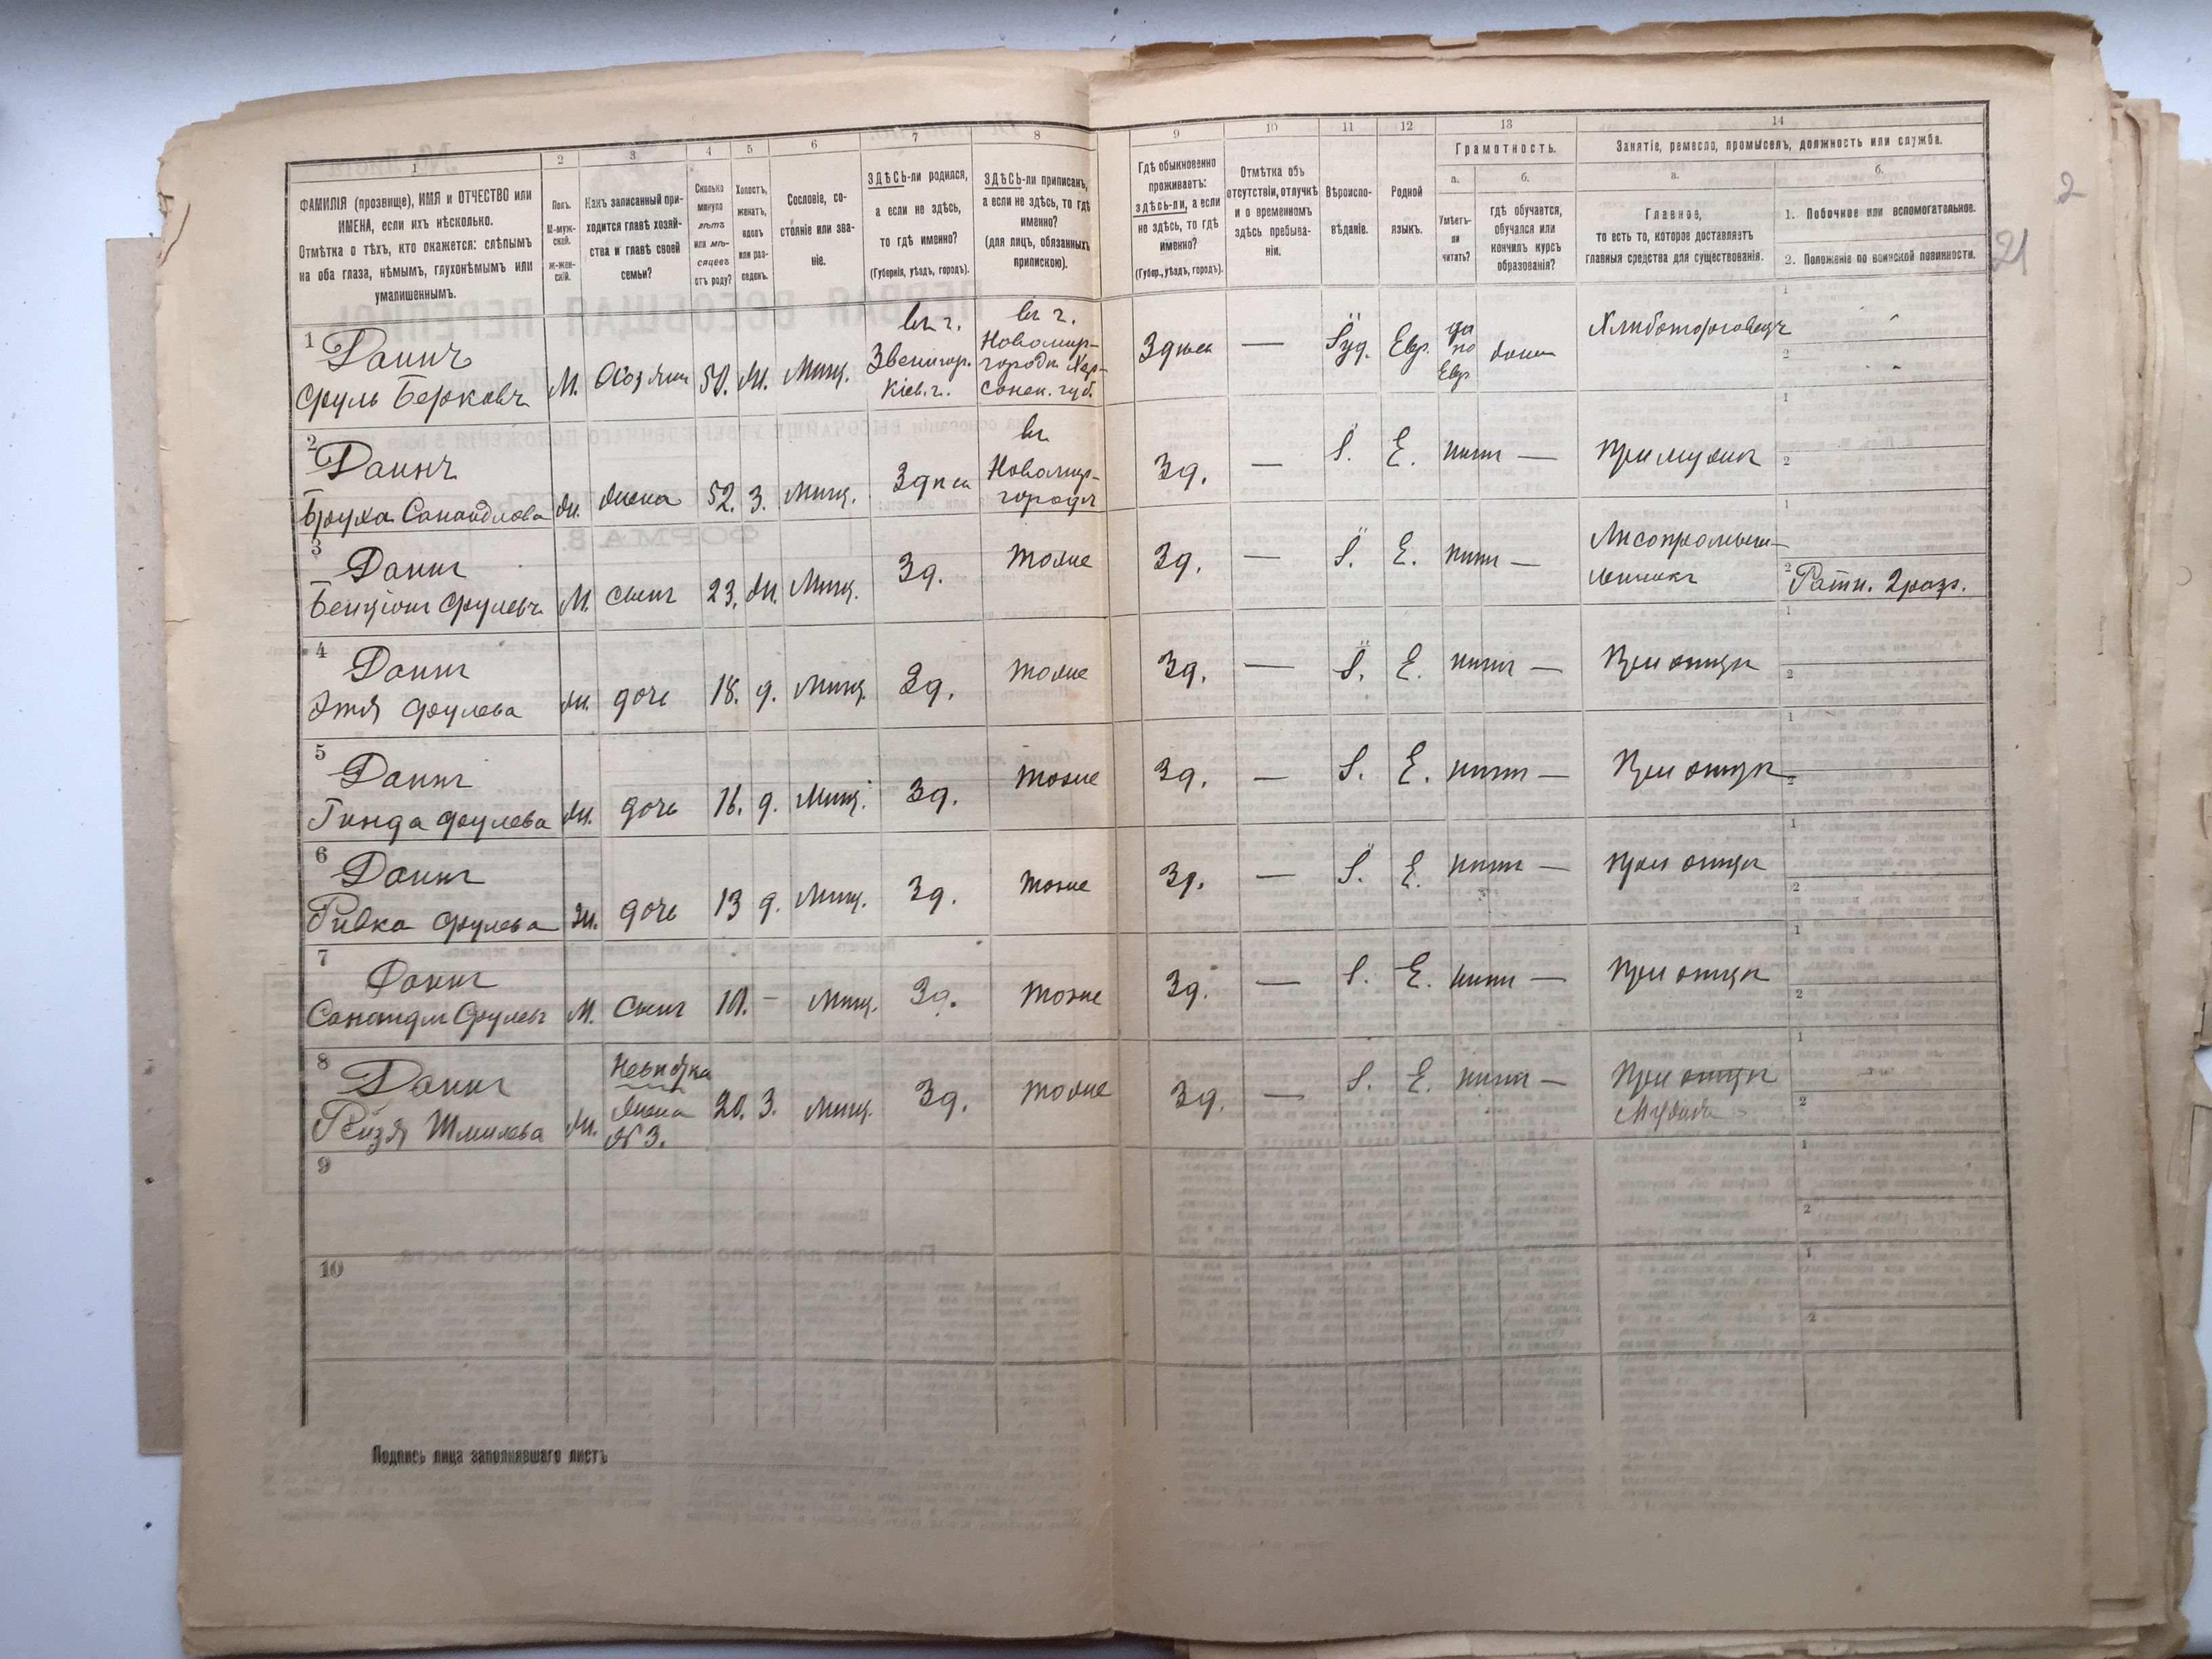 1 2 3 4 5 6 7 8 9 10 11 12 13 14
ФАМИЛІЯ (прозвище), ИМЯ и ОТЧЕСТВО или
ИМЕНА, если ихъ нѣсколько.
Отмѣтка о тѣхъ, кто окажется: слѣпымъ
на оба глаза, нѣмымъ, глухонѣмымъ или
умалишеннымъ.
Полъ.
М-муж-
ской.
ж-жен-
скій.
Какъ записанный при-
ходится главѣ хозяй-
ства и главѣ своей
семьи?
Сколько
минуло
лѣтъ
или мѣ-
сяцевъ
отъ роду?
Холостъ,
женатъ,
вдовъ
или раз-
веденъ.
Сословіе, со-
стояніе или зва-
ніе.
ЗДѢСЬ-ли родился,
а если не здѣсь,
то гдѣ именно?
(Губернія, уѣздъ, городъ).
ЗДѢСЬ-ли приписанъ,
а если не здѣсь, то гдѣ
именно?
(для лицъ, обязанныхъ
припискою).
Гдѣ обыкновенно
проживаетъ:
здѣсь-ли, а если
не здѣсь, то гдѣ
именно?
(Губер., уѣздъ, городъ).
Отмѣтка объ
отсутствіи, отлучкѣ
и о временномъ
здѣсь пребыва-
ніи.
Вѣроиспо-
вѣданіе.
Родной
языкъ.
Грамотность.
а.
Умѣетъ-
ли
читать?
б.
гдѣ обучается,
обучался или
кончилъ курсъ
образованія?
Занятіе, ремесло, промыселъ, должность или служба.
а.
Главное,
то есть то, которое доставляетъ
главныя средства для существованія.
б.
1. Побочное или вспомогательное.
2. Положеніе по воинской повинности.
2
21
1 Даинъ
Сруль Берковъ М. Хозяин 50. Ж. Мѣщ.
въ г.
Звенигор.
Кіев. г.
въ г.
Новомир-
городѣ Хер-
сонск. губ.
Здѣсь — Іуд. Евр.
да
по
Евр.
дома Хлѣботорговецъ
2 Даинъ
Бруха Санайдлова Ж. Жена 52. З. Мѣщ. Здѣсь
въ
Новомир-
городѣ
Зд. — І. Е. нѣтъ — При мужѣ
3 Даинъ
Бенціон Срулевъ М. Сынъ 23. Ж. Мѣщ. Зд. тоже Зд. — І. Е. нѣтъ —
Лѣсопромыш-
ленникъ
Ратн. 2 разр.
4 Даинъ
Этя Срулева Ж. дочь 18. д. Мѣщ. Зд. тоже Зд. — І. Е. нѣтъ — При отцѣ
5 Даинъ
Гинда Срулева Ж. дочь 16. д. Мѣщ. Зд. тоже Зд. — І. Е. нѣтъ — При отцѣ
6 Даинъ
Ривка Срулева Ж. дочь 13 д. Мѣщ. Зд. тоже Зд. — І. Е. нѣтъ — При отцѣ
7 Даинъ
Срулевъ М. Сынъ 10. — Мѣщ. Зд. тоже Зд. — І. Е. нѣтъ — При отцѣ
8 Даинъ
Рейзя Шмилева Ж.
Невѣстка
Жена
№ 3.
20. З. Мѣщ. Зд. тоже Зд. — І. Е. нѣтъ —
При отцѣ
Мужѣ
9
10
Подпись лица заполнявшаго листъ